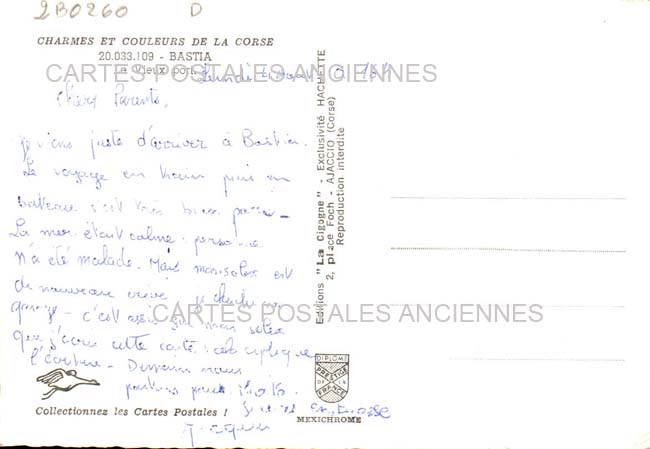 2B0260 D
CHARMES ET COULEURS DE LA CORSE
20.033.109 - BASTIA
Le Vieux port
CARTES POSTALES ANCIENNES
Lundi
Chers Parents,
je viens juste d'arriver à Bastia.
Le voyage en train puis en
bateau s'est très bien passé -
La mer était calme : personne
n'a été malade. Mais mon solex est
de nouveau crevé je cherche un
garage - c'est assis sur mon solex
CARTES POSTALES ANCIENNES
que j'écris cette carte : cela explique
l'écriture - Demain nous
partons pour
Collectionnez les Cartes Postales !
Editions "La Cigogne" - Exclusivité HACHETTE
2, place Foch - AJACCIO (Corse)
Reproduction interdite
DIPLOME
PRESTIGE
DE LA
FRANCE
MEXICHROME